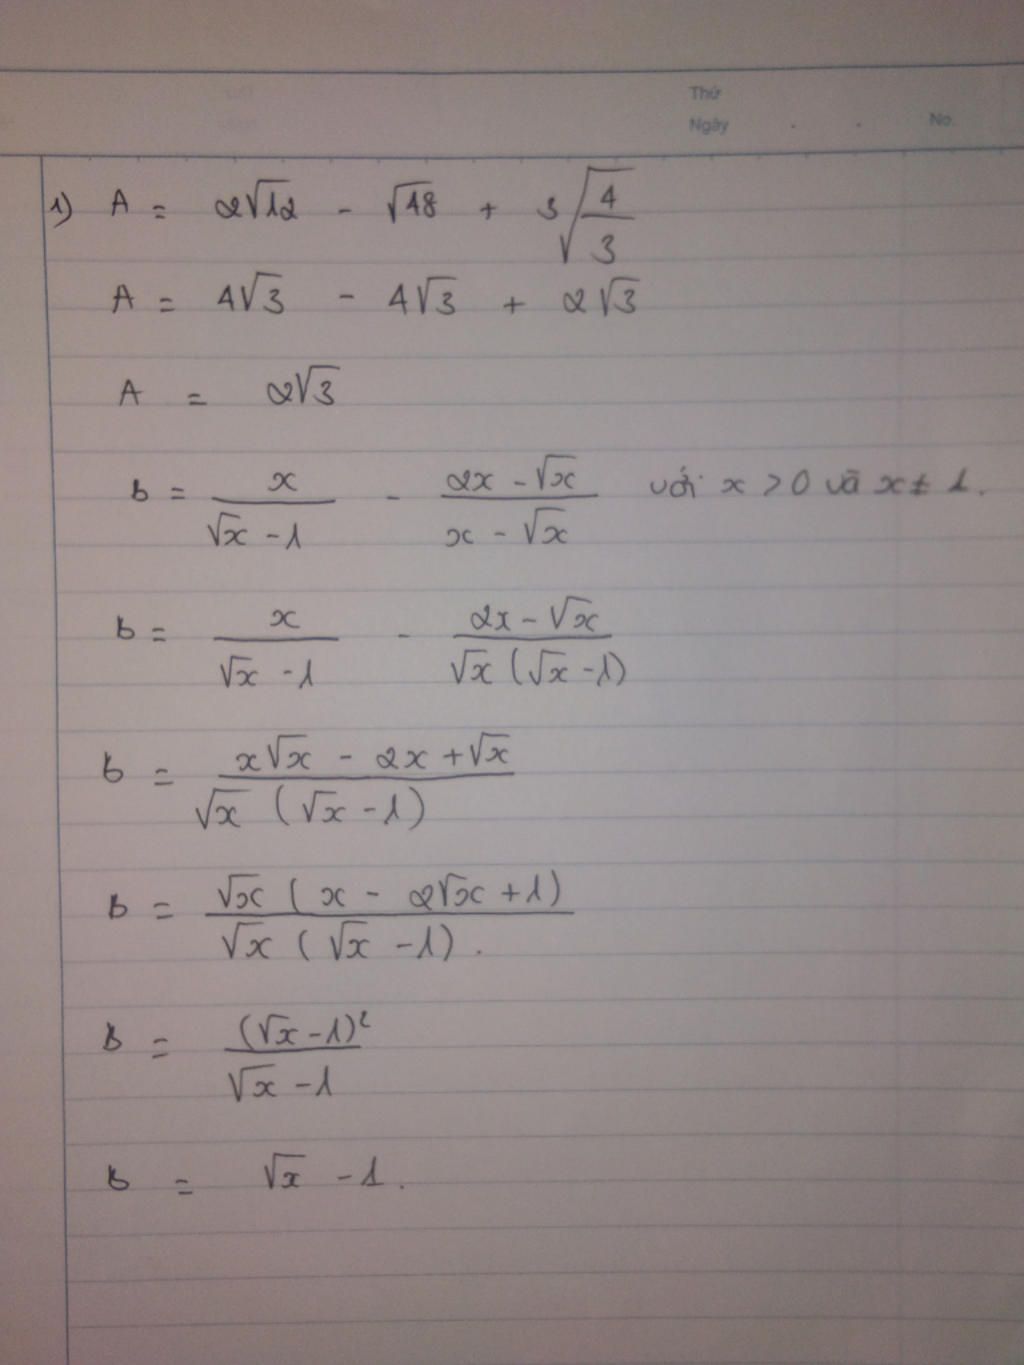 Thứ
Ngày . . No.
1) A = 2√12 - √48 + 3√(4/3)
A = 4√3 - 4√3 + 2√3
A = 2√3
B = x/(√x - 1) - (2x - √x)/(x - √x) với x > 0 và x ≠ 1.
B = x/(√x - 1) - (2x - √x)/(√x (√x - 1))
B = (x√x - 2x + √x)/(√x (√x - 1))
B = √x (x - 2√x + 1)/(√x (√x - 1)).
B = (√x - 1)²/(√x - 1)
B = √x - 1.